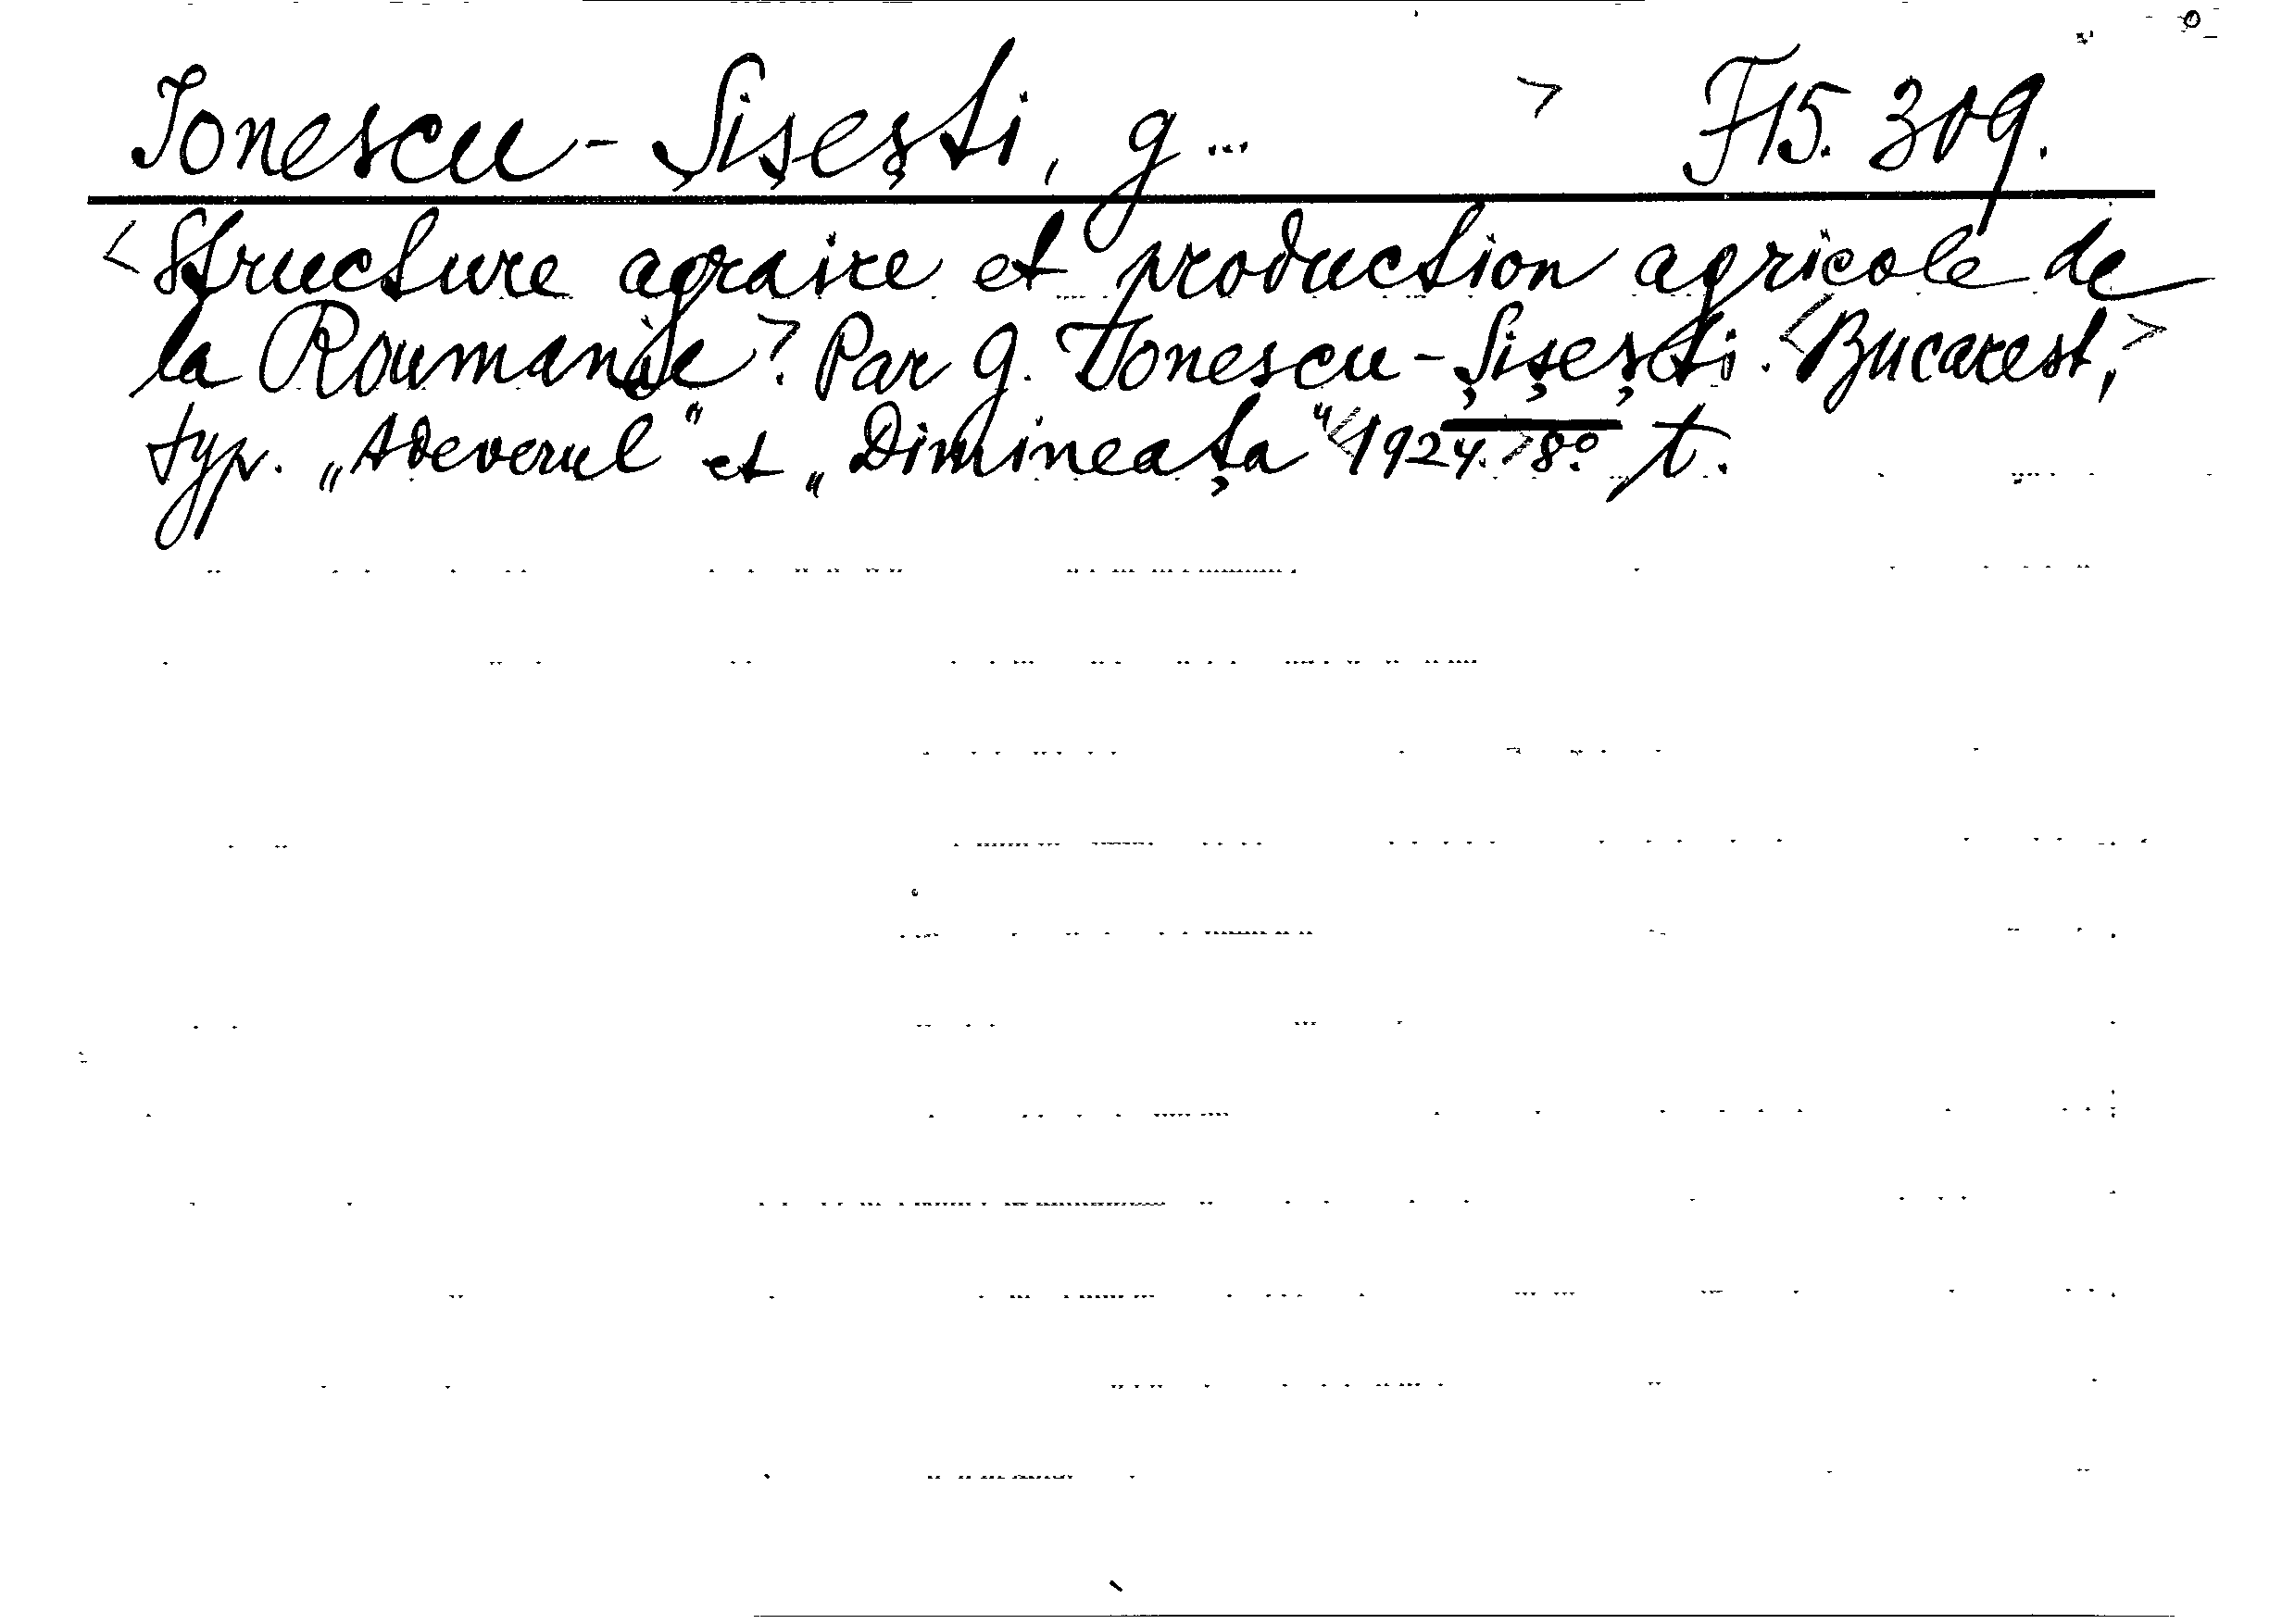 Ionescu-Șișești, G... > F15.309.
<Structure agraire et production agricole de
la Roumanie>. Par G. Ionescu-Șișești. <Bucarest,>
typ. „Adeverul" et „Dimineața" <1924.> 8º. t.